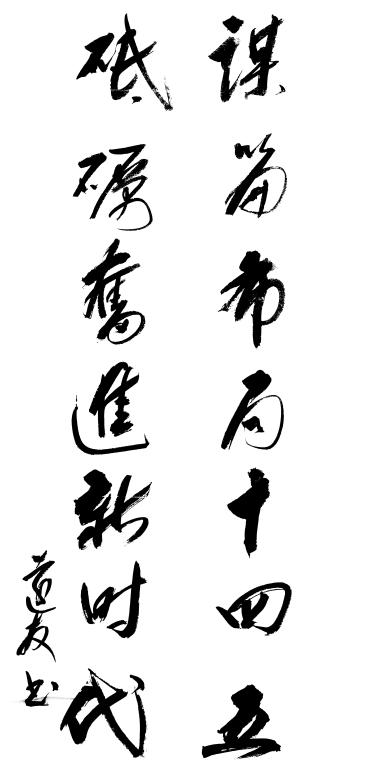 谋篇布局十四五
砥砺奋進新时代
道友书